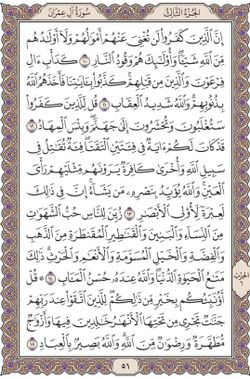 الجُزْءُ الثَّالِثُ
سُورَةُ آلِ عِمْرَانَ
إِنَّ ٱلَّذِينَ كَفَرُوا۟ لَن تُغْنِىَ عَنْهُمْ أَمْوَٰلُهُمْ وَلَآ أَوْلَـٰدُهُم
مِّنَ ٱللَّهِ شَيْـًٔا وَأُو۟لَـٰٓئِكَ هُمْ وَقُودُ ٱلنَّارِ ١٠ كَدَأْبِ ءَالِ
فِرْعَوْنَ وَٱلَّذِينَ مِن قَبْلِهِمْ كَذَّبُوا۟ بِـَٔايَـٰتِنَا فَأَخَذَهُمُ ٱللَّهُ
بِذُنُوبِهِمْ وَٱللَّهُ شَدِيدُ ٱلْعِقَابِ ١١ قُل لِّلَّذِينَ كَفَرُوا۟
سَتُغْلَبُونَ وَتُحْشَرُونَ إِلَىٰ جَهَنَّمَ وَبِئْسَ ٱلْمِهَادُ ١٢
قَدْ كَانَ لَكُمْ ءَايَةٌ فِى فِئَتَيْنِ ٱلْتَقَتَا فِئَةٌ تُقَـٰتِلُ فِى
سَبِيلِ ٱللَّهِ وَأُخْرَىٰ كَافِرَةٌ يَرَوْنَهُم مِّثْلَيْهِمْ رَأْىَ
ٱلْعَيْنِ وَٱللَّهُ يُؤَيِّدُ بِنَصْرِهِۦ مَن يَشَآءُ إِنَّ فِى ذَٰلِكَ
لَعِبْرَةً لِّأُو۟لِى ٱلْأَبْصَـٰرِ ١٣ زُيِّنَ لِلنَّاسِ حُبُّ ٱلشَّهَوَٰتِ
مِنَ ٱلنِّسَآءِ وَٱلْبَنِينَ وَٱلْقَنَـٰطِيرِ ٱلْمُقَنطَرَةِ مِنَ ٱلذَّهَبِ
وَٱلْفِضَّةِ وَٱلْخَيْلِ ٱلْمُسَوَّمَةِ وَٱلْأَنْعَـٰمِ وَٱلْحَرْثِ ذَٰلِكَ
مَتَـٰعُ ٱلْحَيَوٰةِ ٱلدُّنْيَا وَٱللَّهُ عِندَهُۥ حُسْنُ ٱلْمَـَٔابِ ١٤ قُلْ
أَؤُنَبِّئُكُم بِخَيْرٍ مِّن ذَٰلِكُمْ لِلَّذِينَ ٱتَّقَوْا۟ عِندَ رَبِّهِمْ
جَنَّـٰتٌ تَجْرِى مِن تَحْتِهَا ٱلْأَنْهَـٰرُ خَـٰلِدِينَ فِيهَا وَأَزْوَٰجٌ
مُّطَهَّرَةٌ وَرِضْوَٰنٌ مِّنَ ٱللَّهِ وَٱللَّهُ بَصِيرٌۢ بِٱلْعِبَادِ ١٥
الحزب
٦
٥١